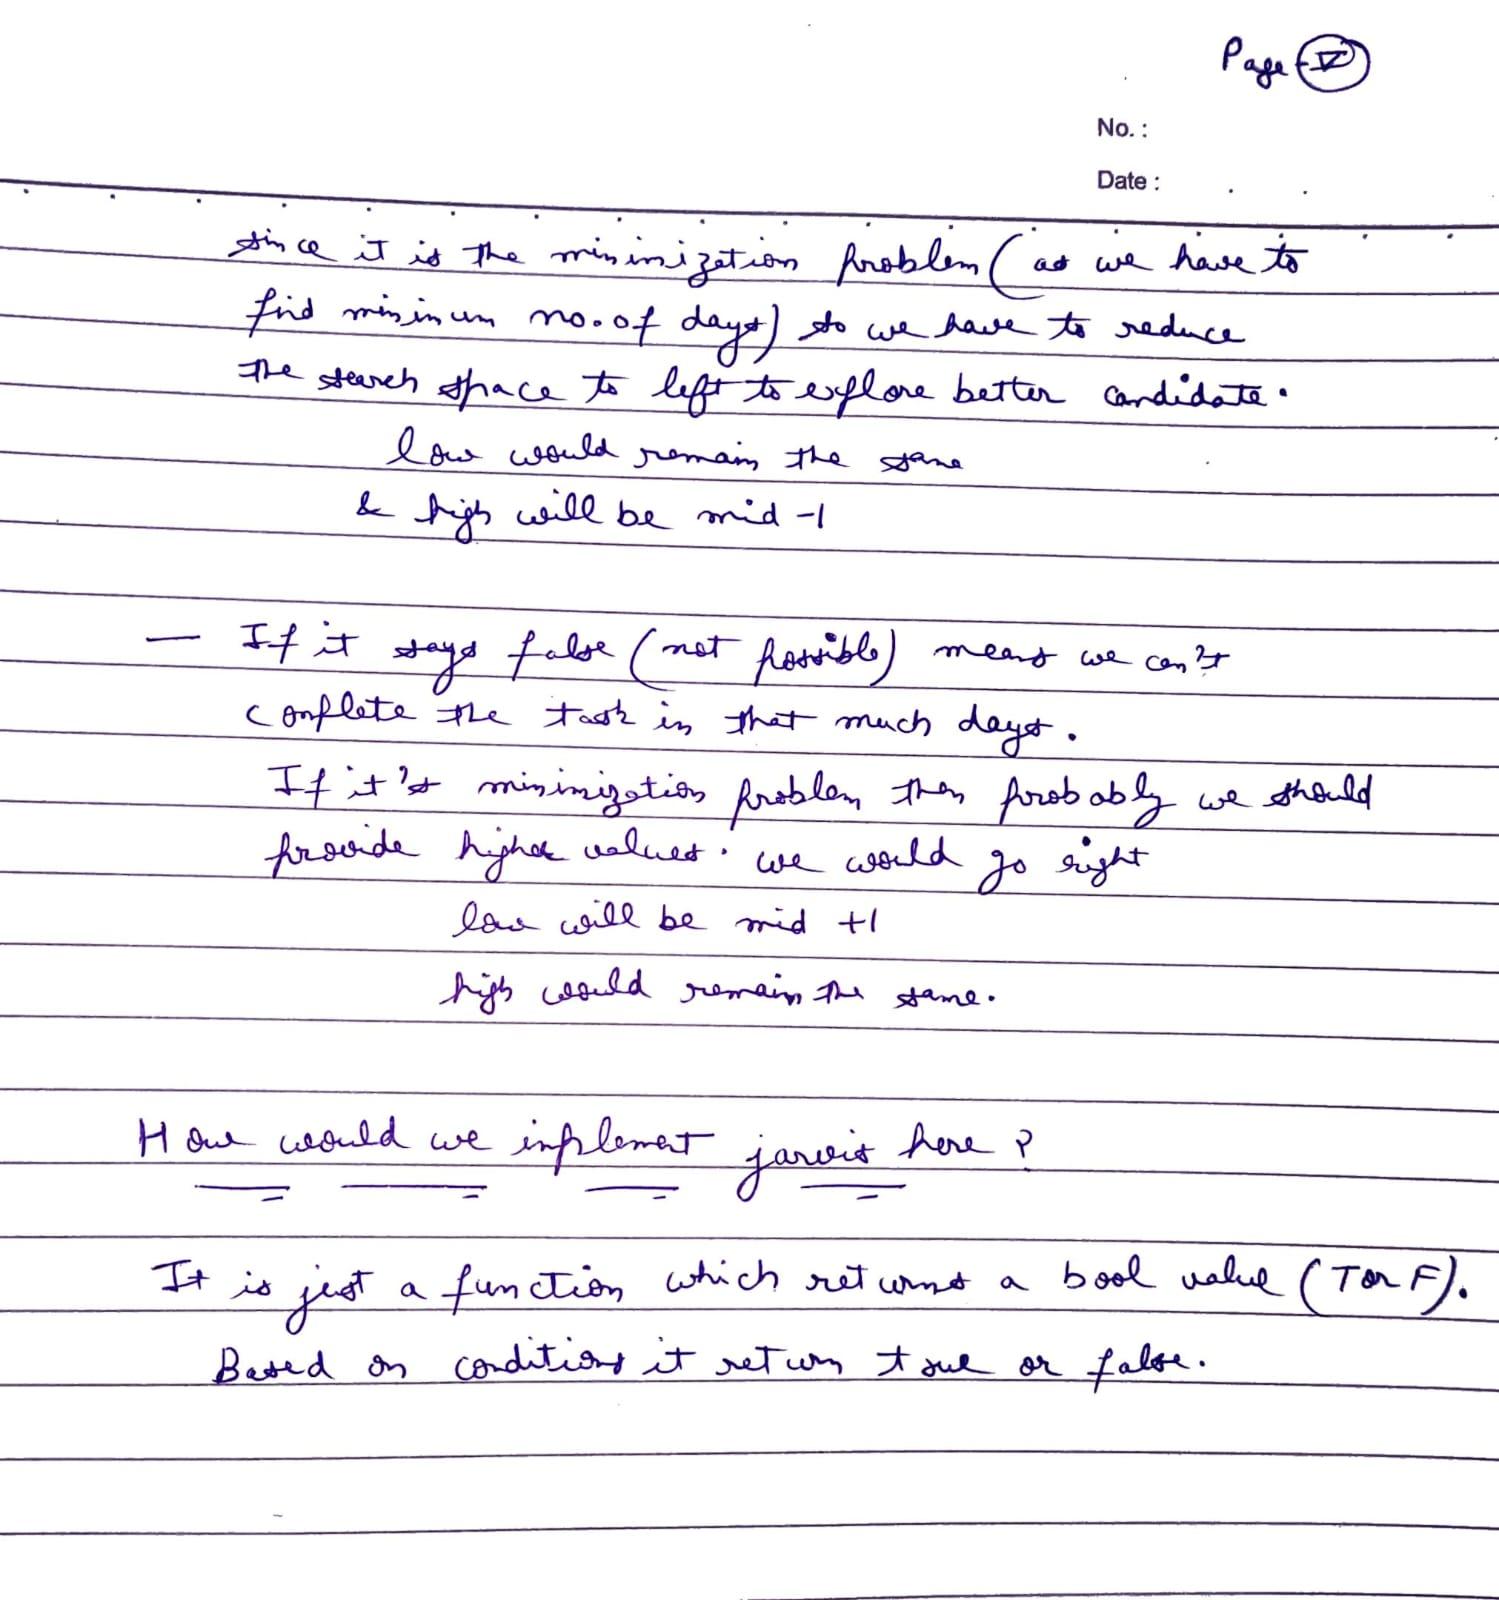 Page - V
No. :
Date :
since it is the minimization problem (as we have to
find minimum no. of days) so we have to reduce
the search space to left to explore better candidate.
low would remain the same
& high will be mid -1
— If it says false (not possible) means we can't
complete the task in that much days.
If it's minimization problem then probably we should
provide higher values. we would go right
low will be mid +1
high would remain the same.
How would we implement jarvis here ?
It is just a function which returns a bool value (T or F).
Based on conditions it return true or false.